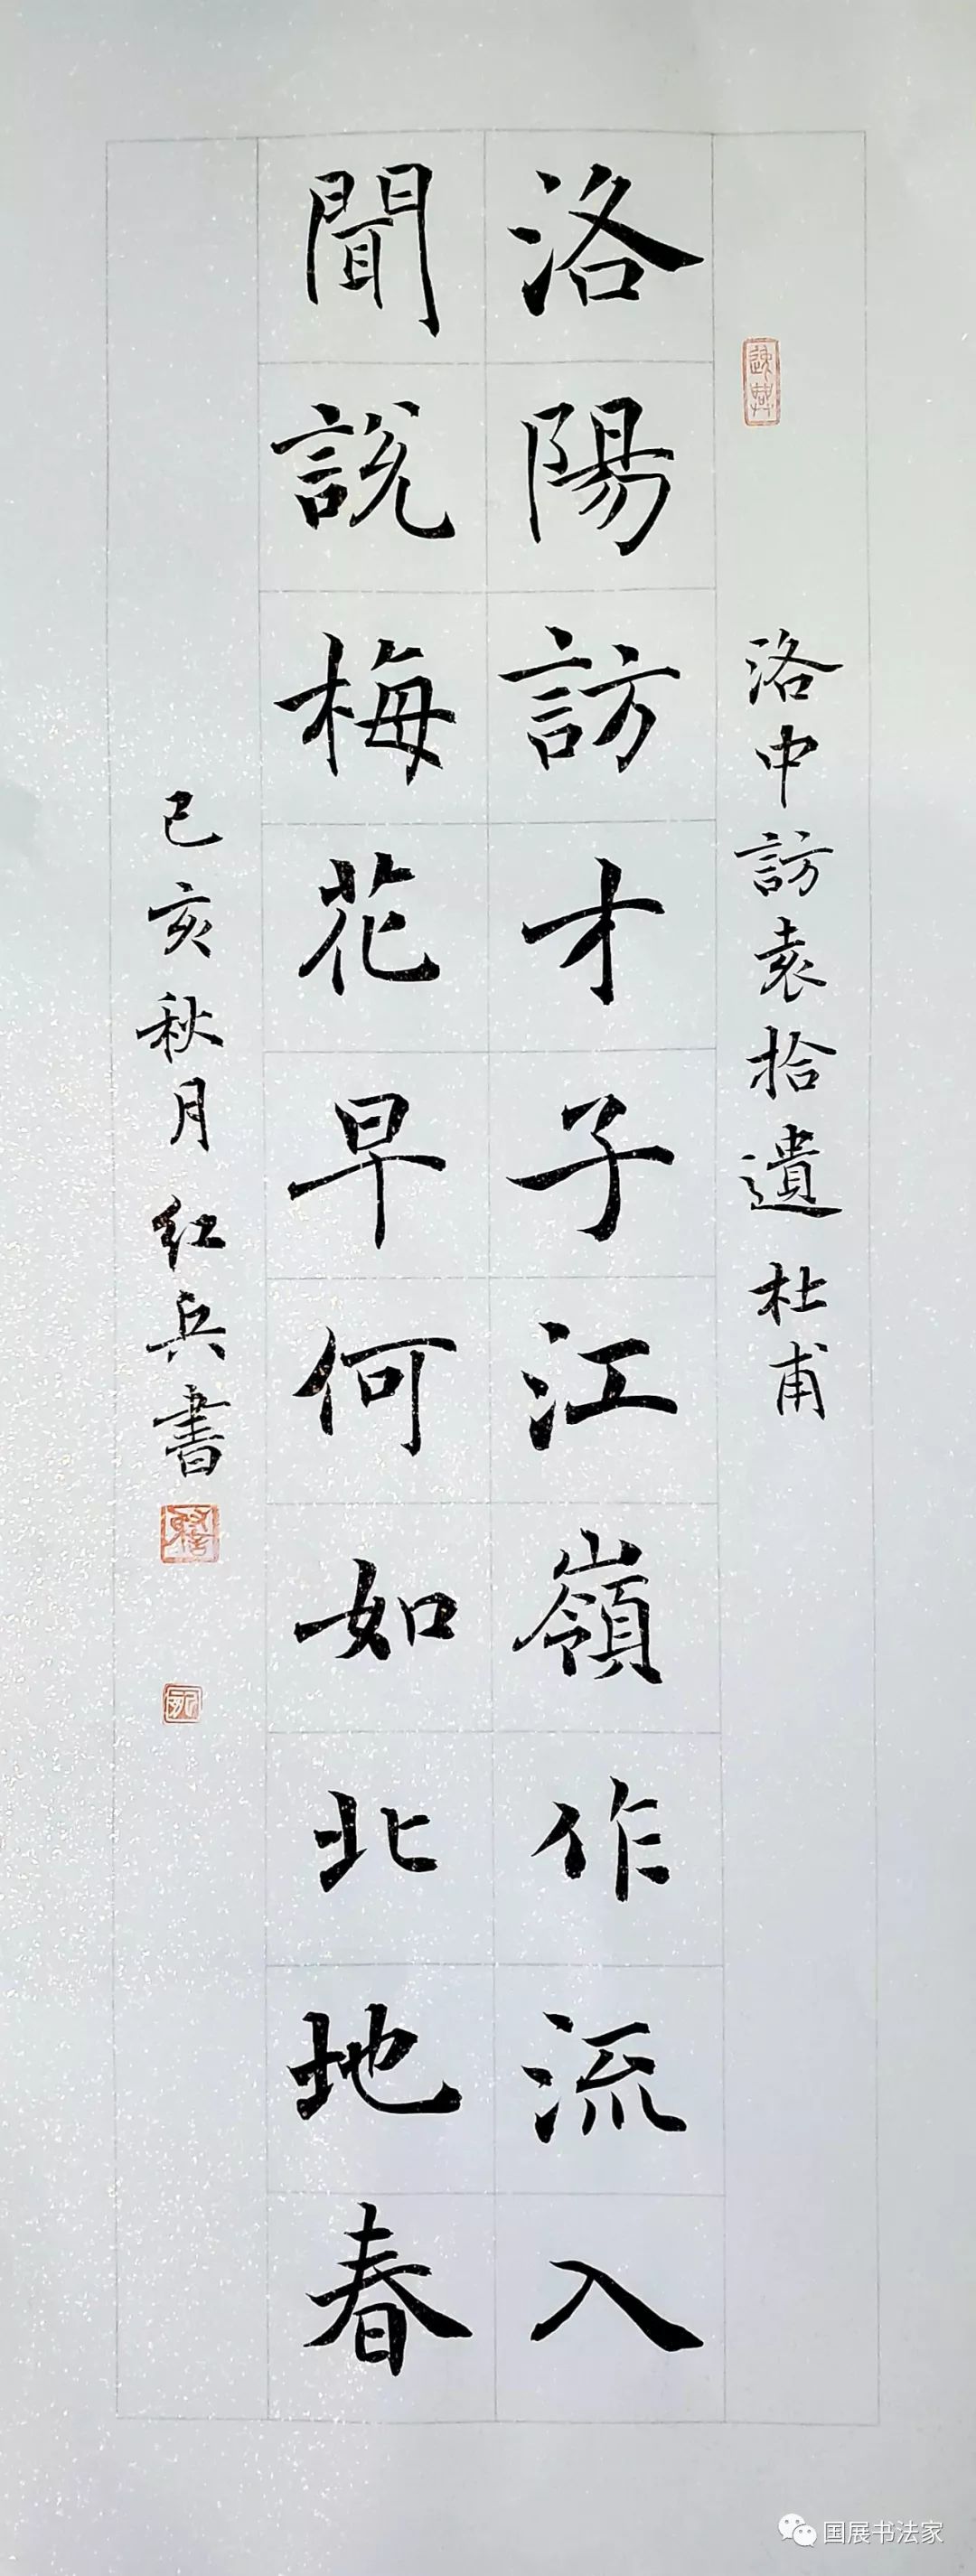 洛中訪袁拾遺 杜甫
洛陽訪才子江嶺作流入
聞說梅花早何如北地春
己亥秋月 红兵書
国展书法家